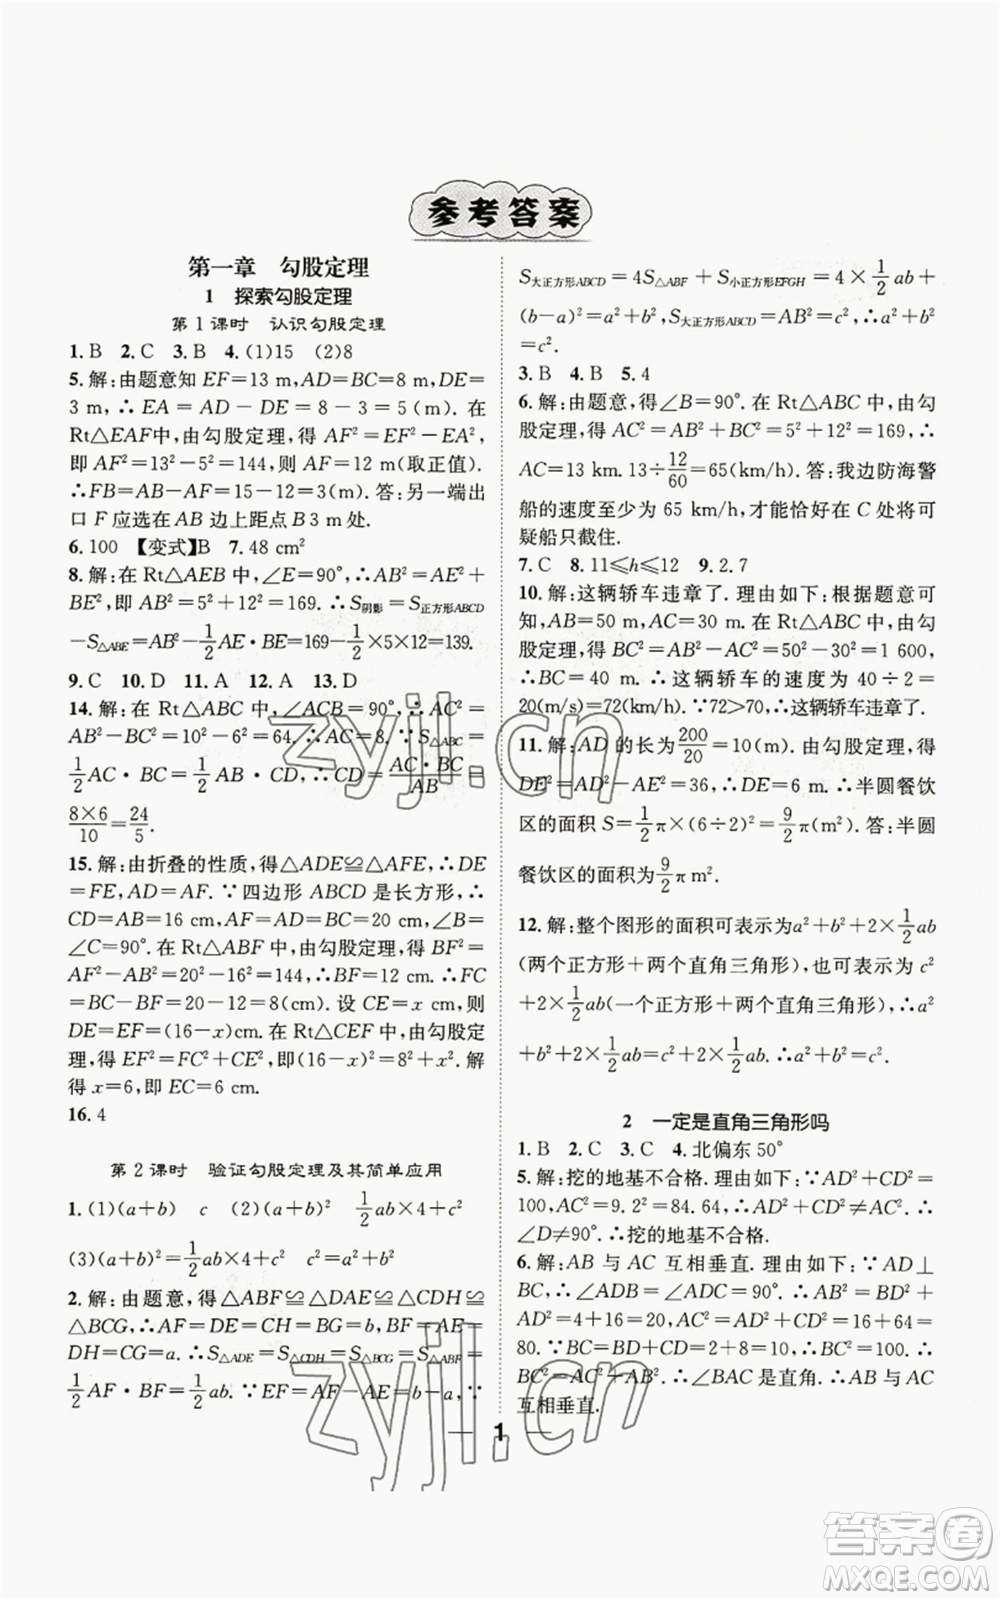 参考答案
第一章 勾股定理
1 探索勾股定理
第1课时 认识勾股定理
1.B 2.C 3.B 4.(1)15 (2)8
5.解:由题意知EF=13 m,AD=BC=8 m,DE=
3 m,∴EA=AD-DE=8-3=5(m).在
Rt△EAF中,由勾股定理,得AF²=EF²-EA²,
即AF²=13²-5²=144,则AF=12 m(取正值).
∴FB=AB-AF=15-12=3(m).答:另一端出
口F应选在AB边上距点B 3 m处.
6.100 【变式】B 7.48 cm²
8.解:在Rt△AEB中,∠E=90°,∴AB²=AE²+
BE²,即AB²=5²+12²=169.∴S阴影=S正方形ABCD
-S△ABE=AB²-1/2AE·BE=169-1/2×5×12=139.
9.C 10.D 11.A 12.A 13.D
14.解:在Rt△ABC中,∠ACB=90°,∴AC²=
AB²-BC²=10²-6²=64.∴AC=8.∵S△ABC=
1/2AC·BC=1/2AB·CD,∴CD=AC·BC/AB=
8×6/10=24/5.
15.解:由折叠的性质,得△ADE≌△AFE,∴DE
=FE,AD=AF.∵四边形ABCD是长方形,∴
CD=AB=16 cm,AF=AD=BC=20 cm,∠B=
∠C=90°.在Rt△ABF中,由勾股定理,得BF²=
AF²-AB²=20²-16²=144,∴BF=12 cm.∴FC
=BC-BF=20-12=8(cm).设CE=x cm,则
DE=EF=(16-x)cm.在Rt△CEF中,由勾股定
理,得EF²=FC²+CE²,即(16-x)²=8²+x².解
得x=6,即EC=6 cm.
16.4
第2课时 验证勾股定理及其简单应用
1.(1)(a+b) c (2)(a+b)² 1/2ab×4+c²
(3)(a+b)²=1/2ab×4+c² c²=a²+b²
2.解:由题意,得△ABF≌△DAE≌△CDH≌
△BCG,∴AF=DE=CH=BG=b,BF=AE=
DH=CG=a.∴S△ADE=S△CDH=S△BCG=S△ABF=
1/2AF·BF=1/2ab.∵EF=AF-AE=b-a,∵
S大正方形ABCD=4S△ABF+S小正方形EFGH=4×1/2ab+
(b-a)²=a²+b²,S大正方形ABCD=AB²=c²,∴a²+b²
=c².
3.B 4.B 5.4
6.解:由题意,得∠B=90°.在Rt△ABC中,由勾
股定理,得AC²=AB²+BC²=5²+12²=169,∴
AC=13 km.13÷12/60=65(km/h).答:我边防海警
船的速度至少为65 km/h,才能恰好在C处将可
疑船只截住.
7.C 8.11≤h≤12 9.2.7
10.解:这辆轿车违章了.理由如下:根据题意可
知,AB=50 m,AC=30 m.在Rt△ABC中,由勾
股定理,得BC²=AB²-AC²=50²-30²=1 600,
∴BC=40 m.∴这辆轿车的速度为40÷2=
20(m/s)=72(km/h).∵72>70,∴这辆轿车违章了.
11.解:AD的长为200/20=10(m).由勾股定理,得
DE²=AD²-AE²=36,∴DE=6 m.∴半圆餐饮
区的面积S=1/2π×(6÷2)²=9/2π(m²).答:半圆
餐饮区的面积为9/2π m².
12.解:整个图形的面积可表示为a²+b²+2×1/2ab
(两个正方形+两个直角三角形),也可表示为c²
+2×1/2ab(一个正方形+两个直角三角形),∴a²
+b²+2×1/2ab=c²+2×1/2ab.∴a²+b²=c².
2 一定是直角三角形吗
1.B 2.C 3.C 4.北偏东50°
5.解:挖的地基不合格.理由如下:∵AD²+CD²=
100,AC²=9.2²=84.64,∴AD²+CD²≠AC².∴
∠D≠90°.∴挖的地基不合格.
6.解:AB与AC互相垂直.理由如下:∵AD⊥
BC,∴∠ADB=∠ADC=90°.∴AB²=BD²+
AD²=4+16=20,AC²=AD²+CD²=16+64=
80.∵BC=BD+CD=2+8=10,∴BC²=100.∴
BC²=AC²+AB².∴∠BAC是直角.∴AB与AC
互相垂直.
1
zyjl.cn
zyjl.cn
答案卷
MXQE.COM